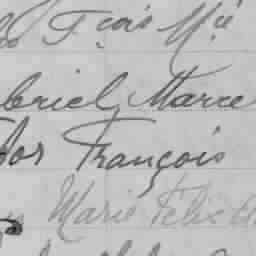 Fçois Mie
briel Marce
dor François
Marie Félicité